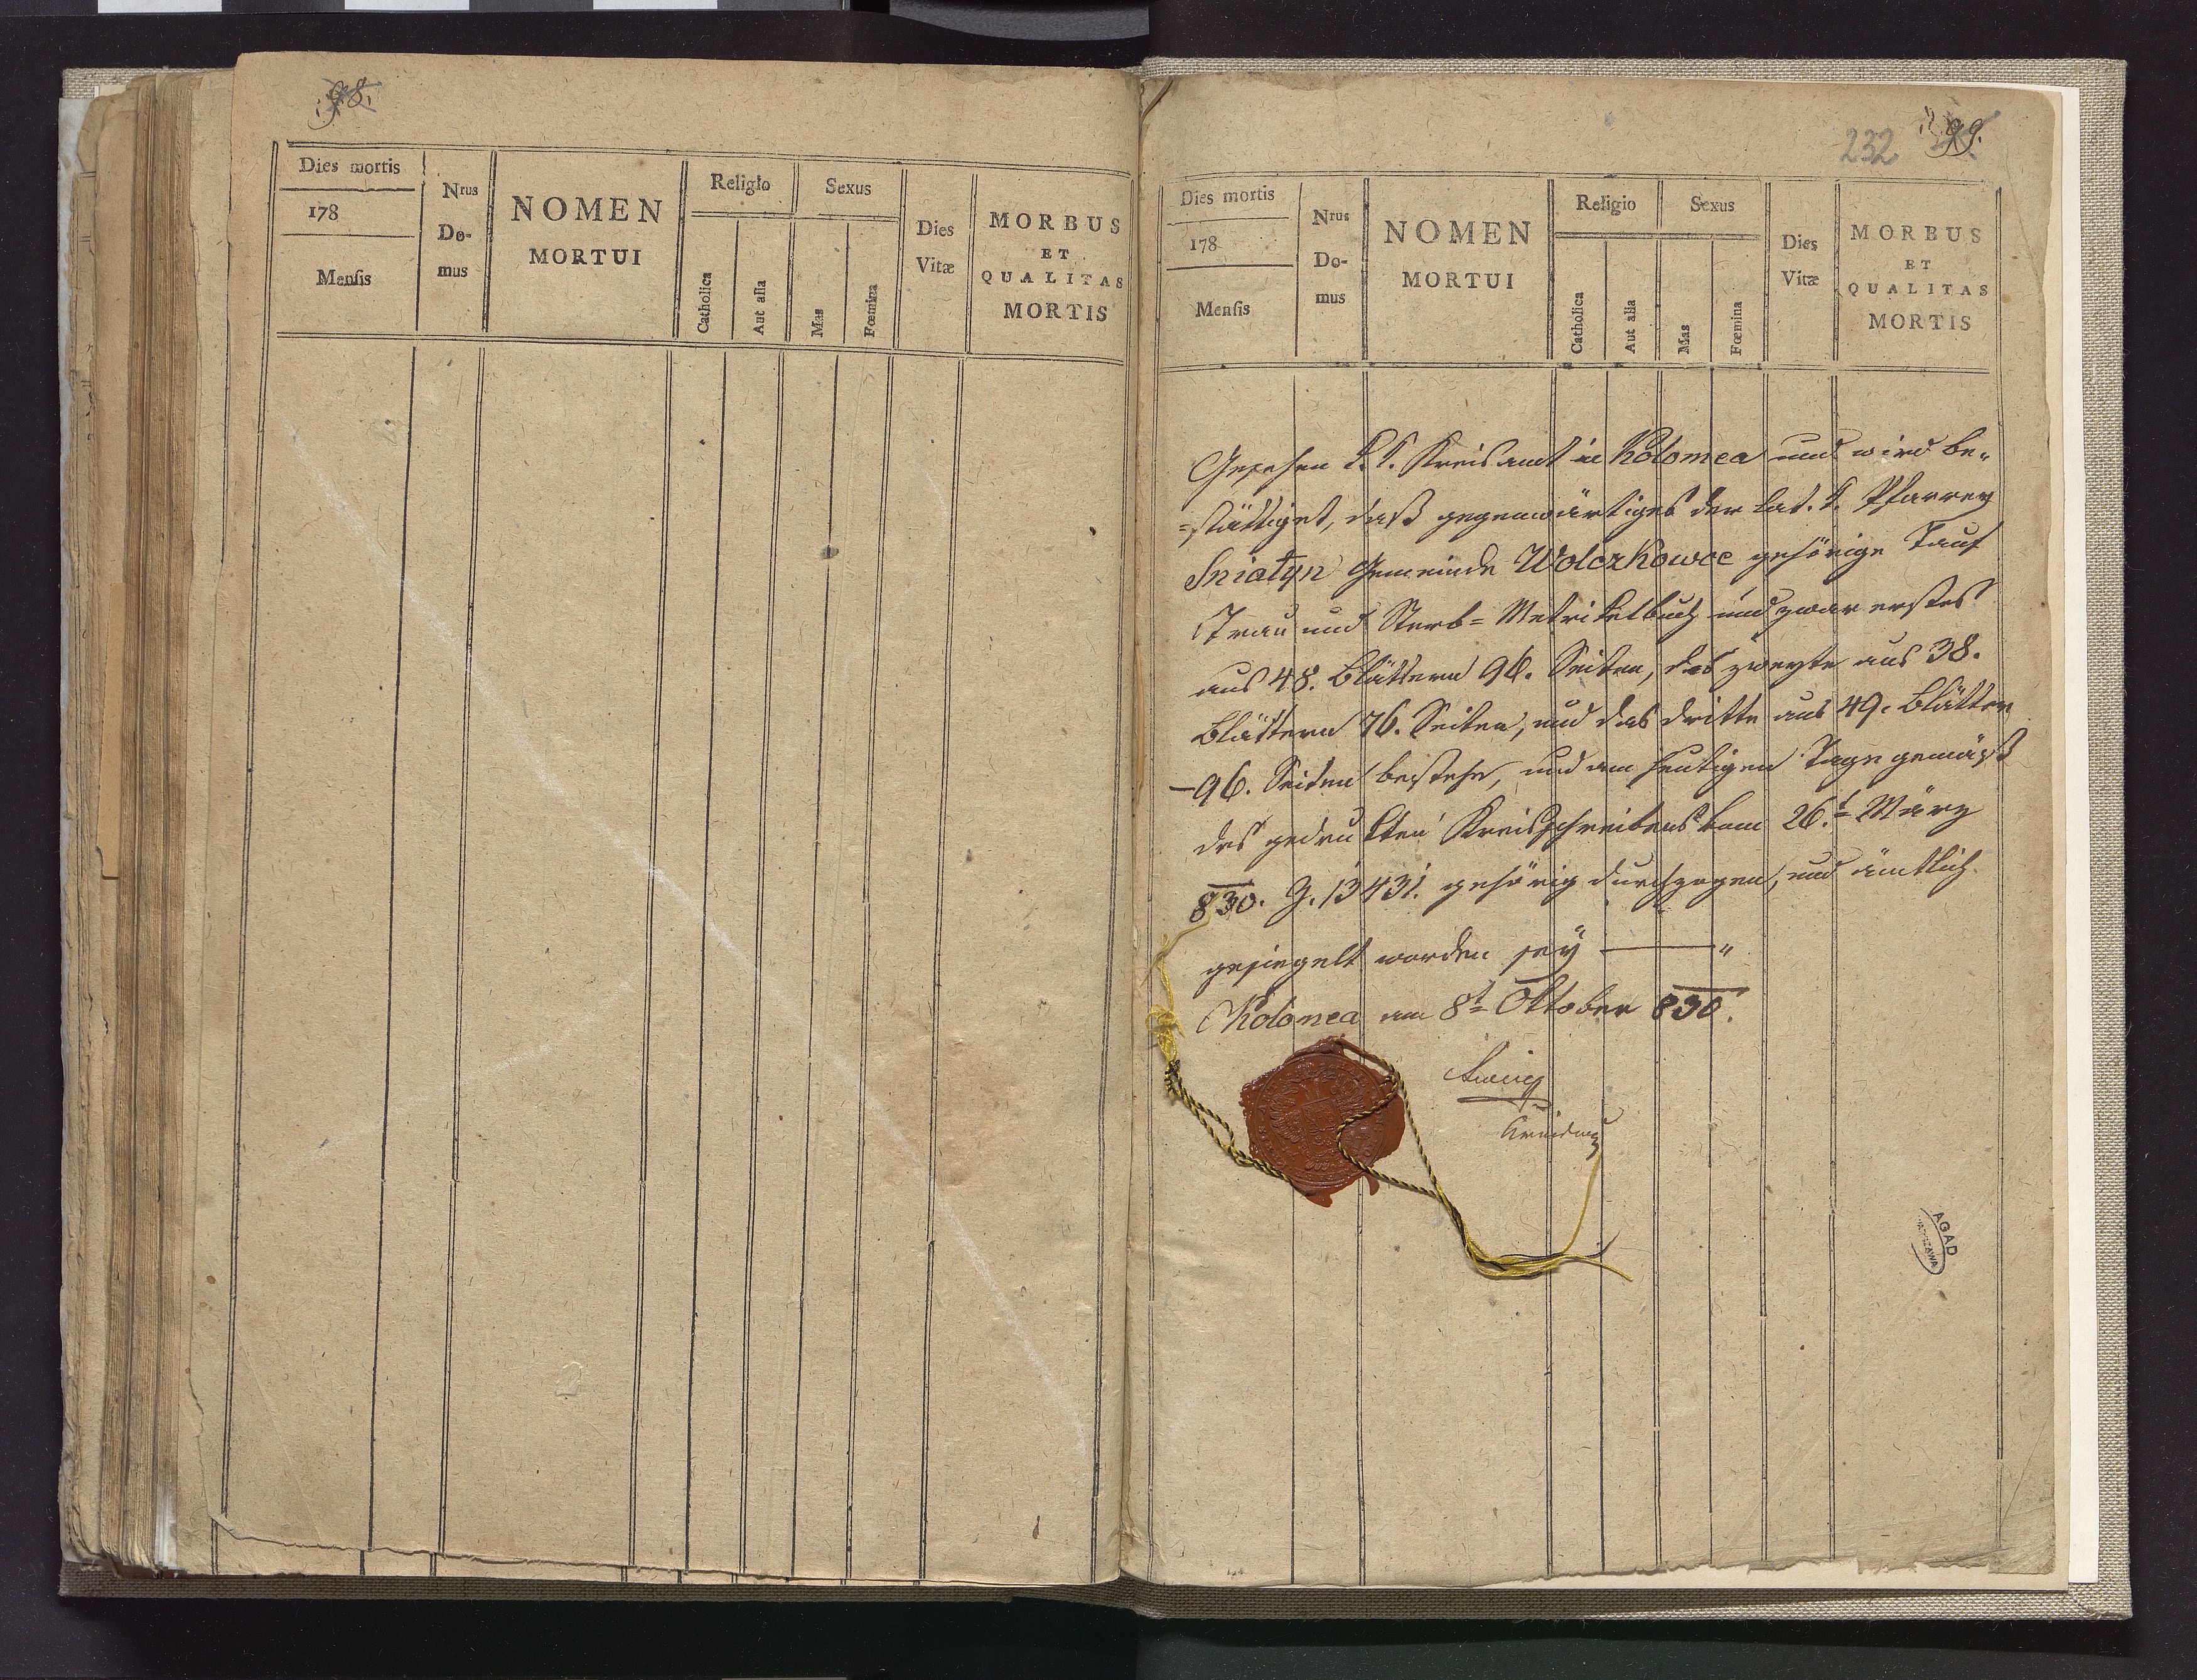 98.
Dies mortis
178
Mensis
Nrus
Do-
mus
NOMEN
MORTUI
Religio
Catholica
Aut alia
Sexus
Mas
Fœmina
Dies
Vitæ
MORBUS
ET
QUALITAS
MORTIS
232
99.
Dies mortis
178
Mensis
Nrus
Do-
mus
NOMEN
MORTUI
Religio
Catholica
Aut alia
Sexus
Mas
Fœmina
Dies
Vitæ
MORBUS
ET
QUALITAS
MORTIS
Gesehen k.k. Kreisamt in Kolomea und wird be-
=stättiget, daß gegenwärtiges der lat. k. Pfarrey
Sniatyn Gemeinde Wolczkowce gehörige Tauf
Trau und Sterb=Metrikelbuch und zwar erstes
aus 48. Blättern 96. Seiten, das zweyte aus 38.
Blättern 76. Seiten, und das dritte aus 49. Blätter
–96. Seiten bestehe, und am heutigen Tage gemäß
des gedrukten Kreisschreibens vom 26.t März
830. Z. 13431. gehörig durchzogen, und ämtlich
gesiegelt worden sey
Kolomea am 8t Oktober 830.
AGAD
WARSZAWA